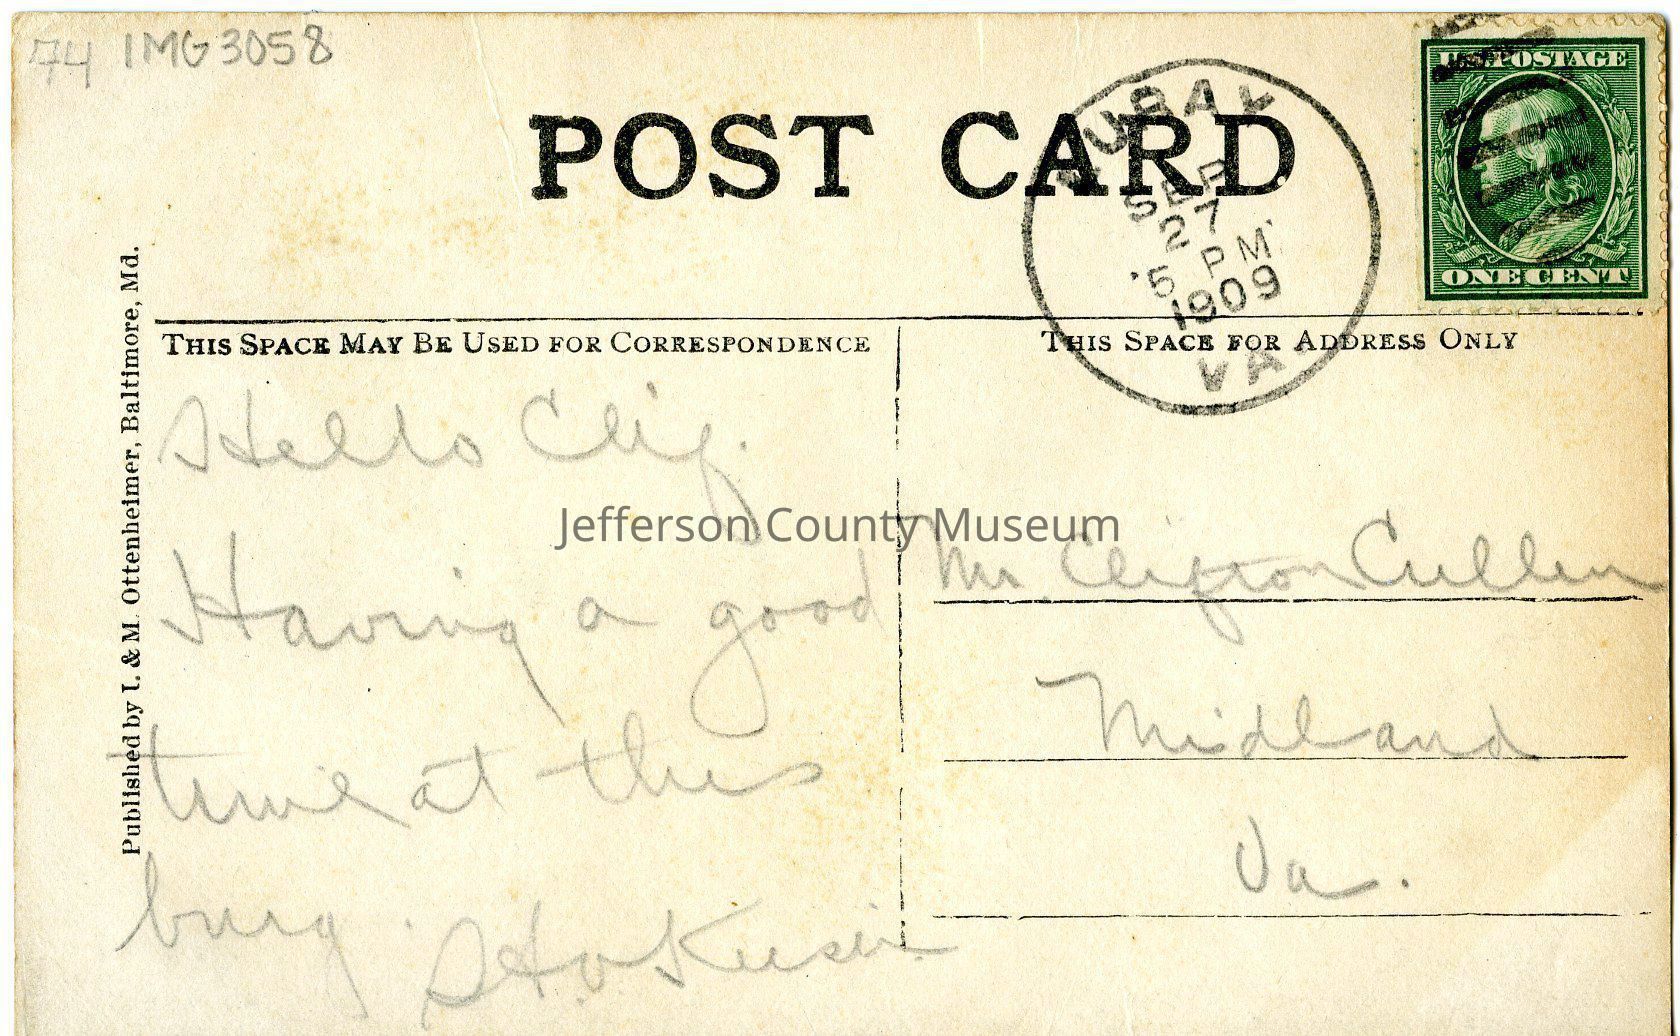 74 IMG3058
POST CARD
AURAY
SEP
27
5 PM
1909
VA.
U.S. POSTAGE
ONE CENT
THIS SPACE MAY BE USED FOR CORRESPONDENCE
THIS SPACE FOR ADDRESS ONLY
Published by I. & M. Ottenheimer, Baltimore, Md.
Hello Clif.
Having a good
time at this
burg.
Jefferson County Museum
Mr. Clifton Cullen
Midland
Va.